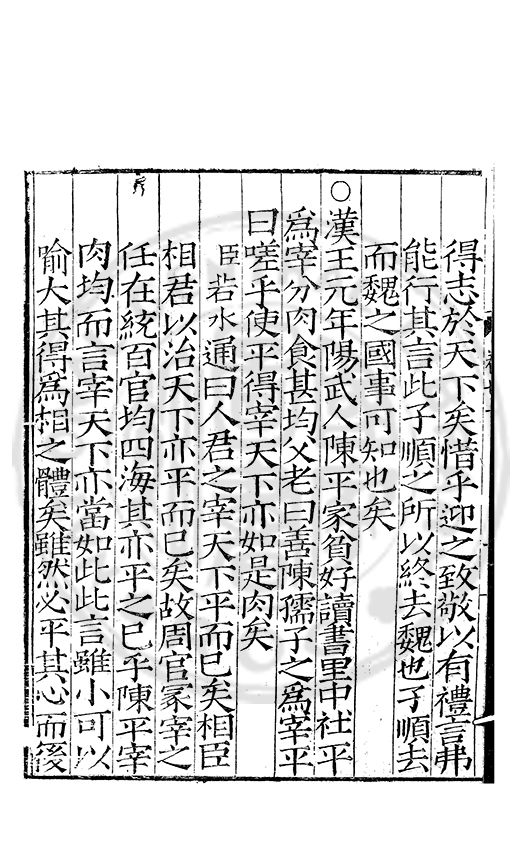 得志於天下矣惜乎迎之致敬以有禮言弗
能行其言此子順之所以終去魏也子順去
而魏之國事可知也矣
○漢王元年陽武人陳平家貧好讀書里中社平
爲宰分肉食甚均父老曰善陳孺子之爲宰平
曰嗟乎使平得宰天下亦如是肉矣
臣若水通曰人君之宰天下平而已矣相臣
相君以治天下亦平而已矣故周官冢宰之
任在統百官均四海其亦平之已乎陳平宰
肉均而言宰天下亦當如此此言雖小可以
喻大其得爲相之體矣雖然必平其心而後